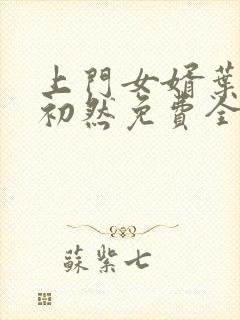 上門女婿葉
初然免費全
蘇紫七